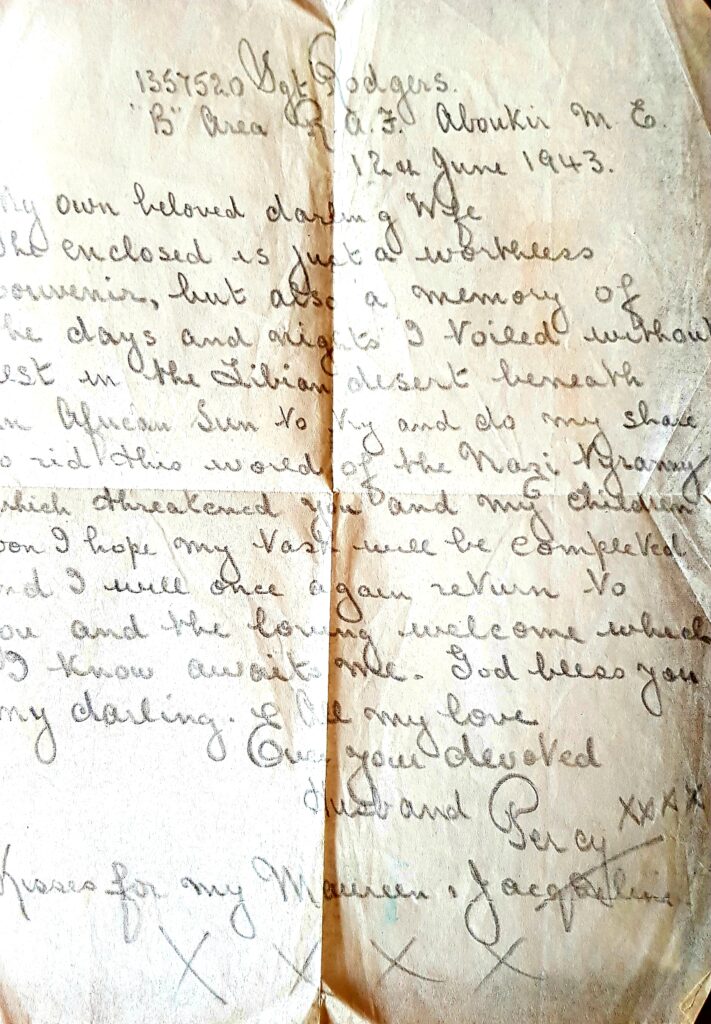 1357520 Sgt Rodgers.
"B" Area R.A.F. Aboukir M.E.
12th June 1943.
My own beloved darling Wife
The enclosed is just a worthless
souvenir, but also a memory of
the days and nights I toiled without
rest in the Libian desert beneath
an African Sun to try and do my share
to rid this world of the Nazi Tyranny
which threatened you and my children
Soon I hope my task will be completed
and I will once again return to
you and the loving welcome which
I know awaits me. God bless you
my darling. All my love
Ever your devoted
Husband Percy xxxx
Kisses for my Maureen & Jacqueline
X X X X